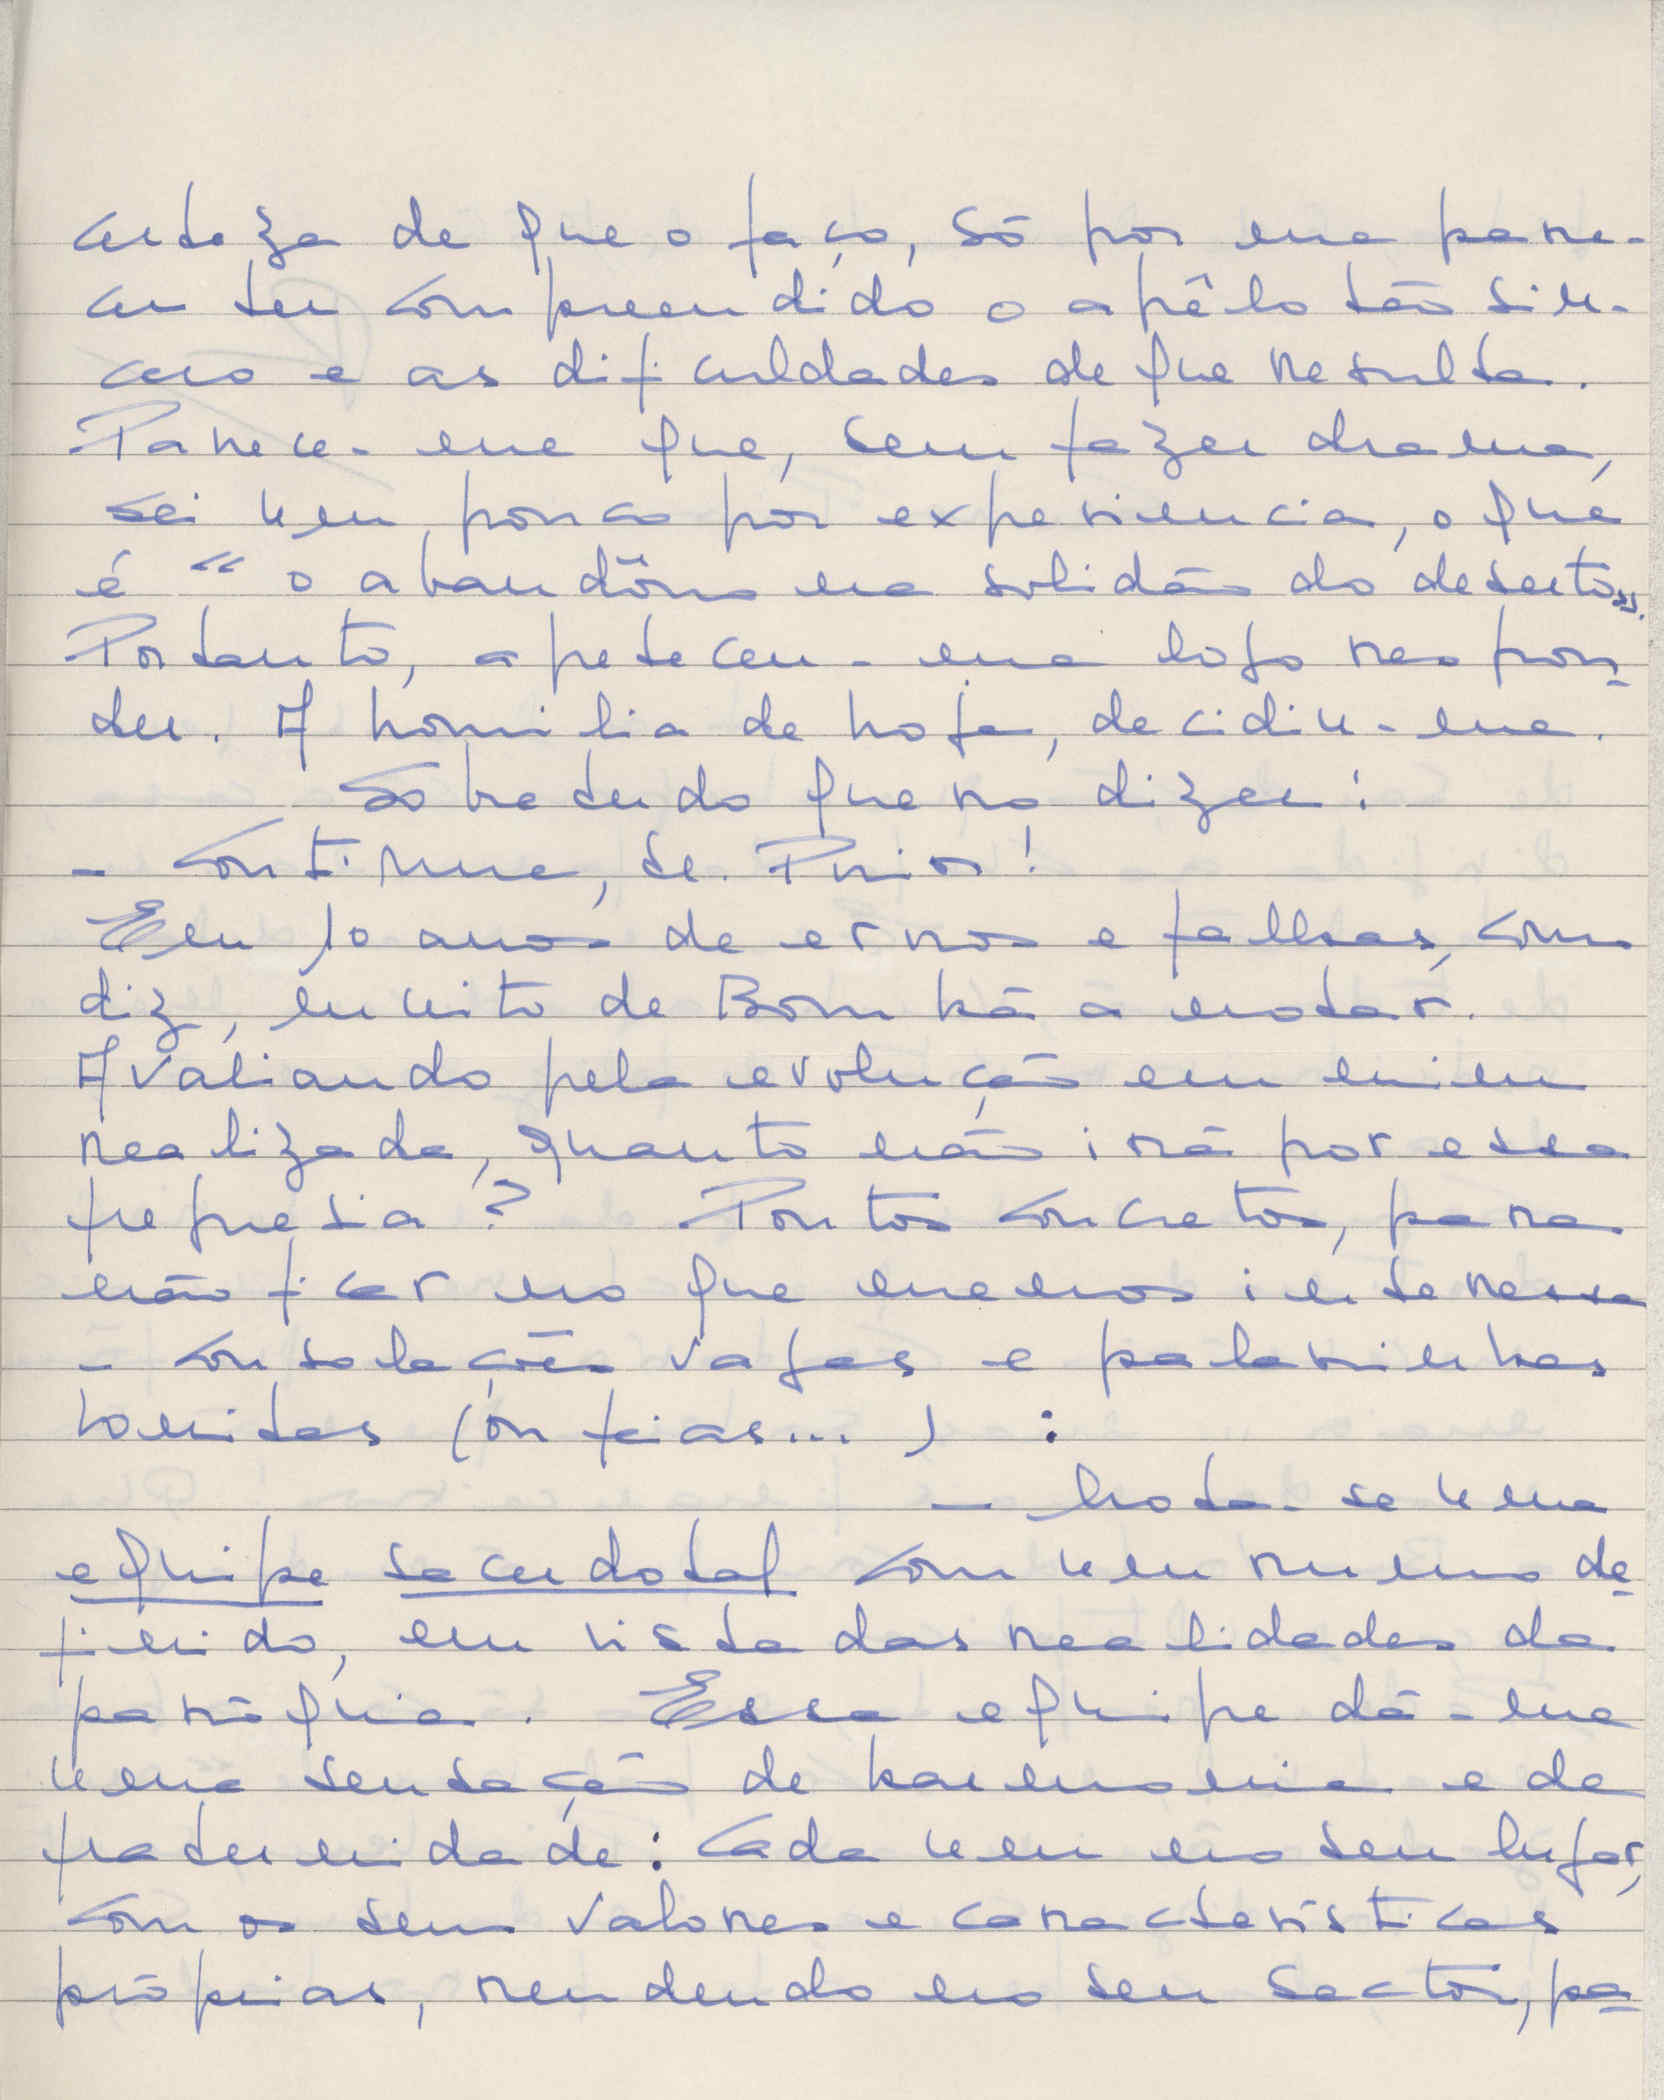 certeza de que o faço, só por me pare-
cer ter compreendido o apêlo tão sin-
cero e as dificuldades de que resulta.
Parece-me que, sem fazer drama,
sei um pouco por experiencia, o que
é "o abandôno na solidão do deserto".
Portanto, apeteceu-me logo respon-
der. A homilia de hoje, decidiu-me.
Sobretudo quero dizer:
- Continue, Sr. Prior!
Em 10 anos de erros e falhas, como
diz, muito de Bom há a notar.
Avaliando pela evolução em mim
realizada, quanto não irá por essa
freguesia? Pontos concretos, para
não ficar no que menos interessa
- consolações vagas e palavrinhas
bonitas (ou feias...) :
- Nota-se uma
equipe sacerdotal com um rumo de
finido, em vista das realidades da
paróquia. Essa equipe dá-me
uma sensação de harmonia e de
fraternidade: Cada um no seu lugar,
com os seus valores e caracteristicas
próprias, rendendo no seu sector, pa